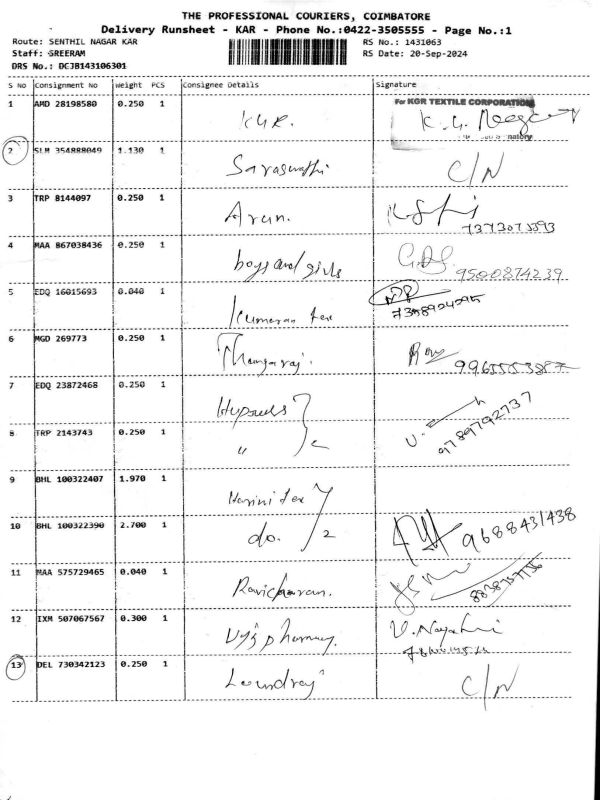 THE PROFESSIONAL COURIERS, COIMBATORE
Delivery Runsheet - KAR - Phone No.:0422-3505555 - Page No.:1
Route: SENTHIL NAGAR KAR RS No.: 1431063
Staff: SREERAM RS Date: 20-Sep-2024
DRS No.: DCJB143106301
S No Consignment No Weight PCS Consignee Details Signature
1 AMD 28198580 0.250 1 KGR. For KGR TEXTILE CORPORATION
2 SLM 354888049 1.130 1 Saraswathi C/N
3 TRP 8144097 0.250 1 Arun.
4 MAA 867038436 0.250 1 boys and girls 9500874239
5 EDQ 16015693 0.040 1 Kumaran tex
6 MGD 269773 0.250 1 Thangaraj.
7 EDQ 23872468 0.250 1
8 TRP 2143743 0.250 1 " 9789792737
9 BHL 100322407 1.970 1 Harini tex
10 BHL 100322390 2.700 1 do. 2 9688431438
11 MAA 575729465 0.040 1 Ravicharan.
12 IXM 507067567 0.300 1 pharmacy
13 DEL 730342123 0.250 1 C/N